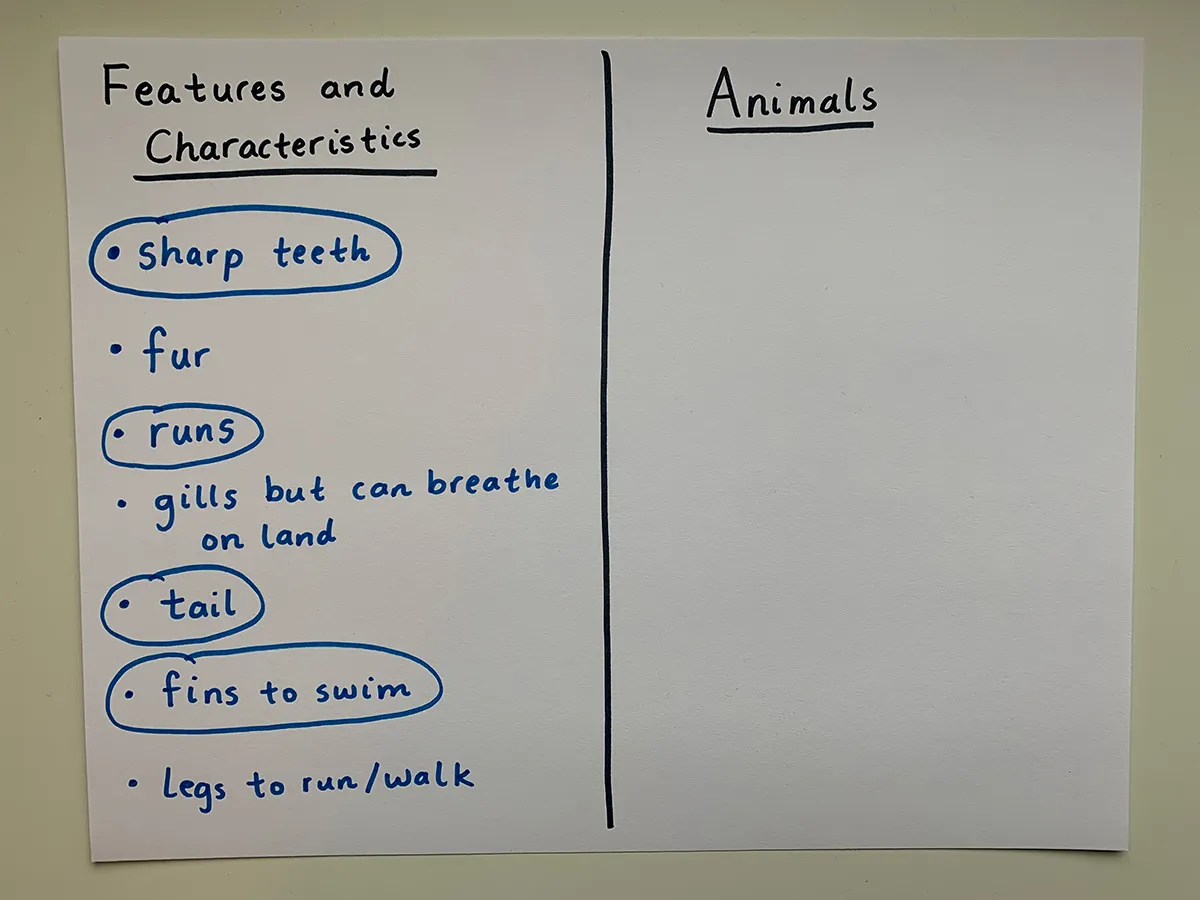 Features and
Characteristics
• sharp teeth
• fur
• runs
• gills but can breathe
on land
• tail
• fins to swim
• Legs to run/walk
Animals